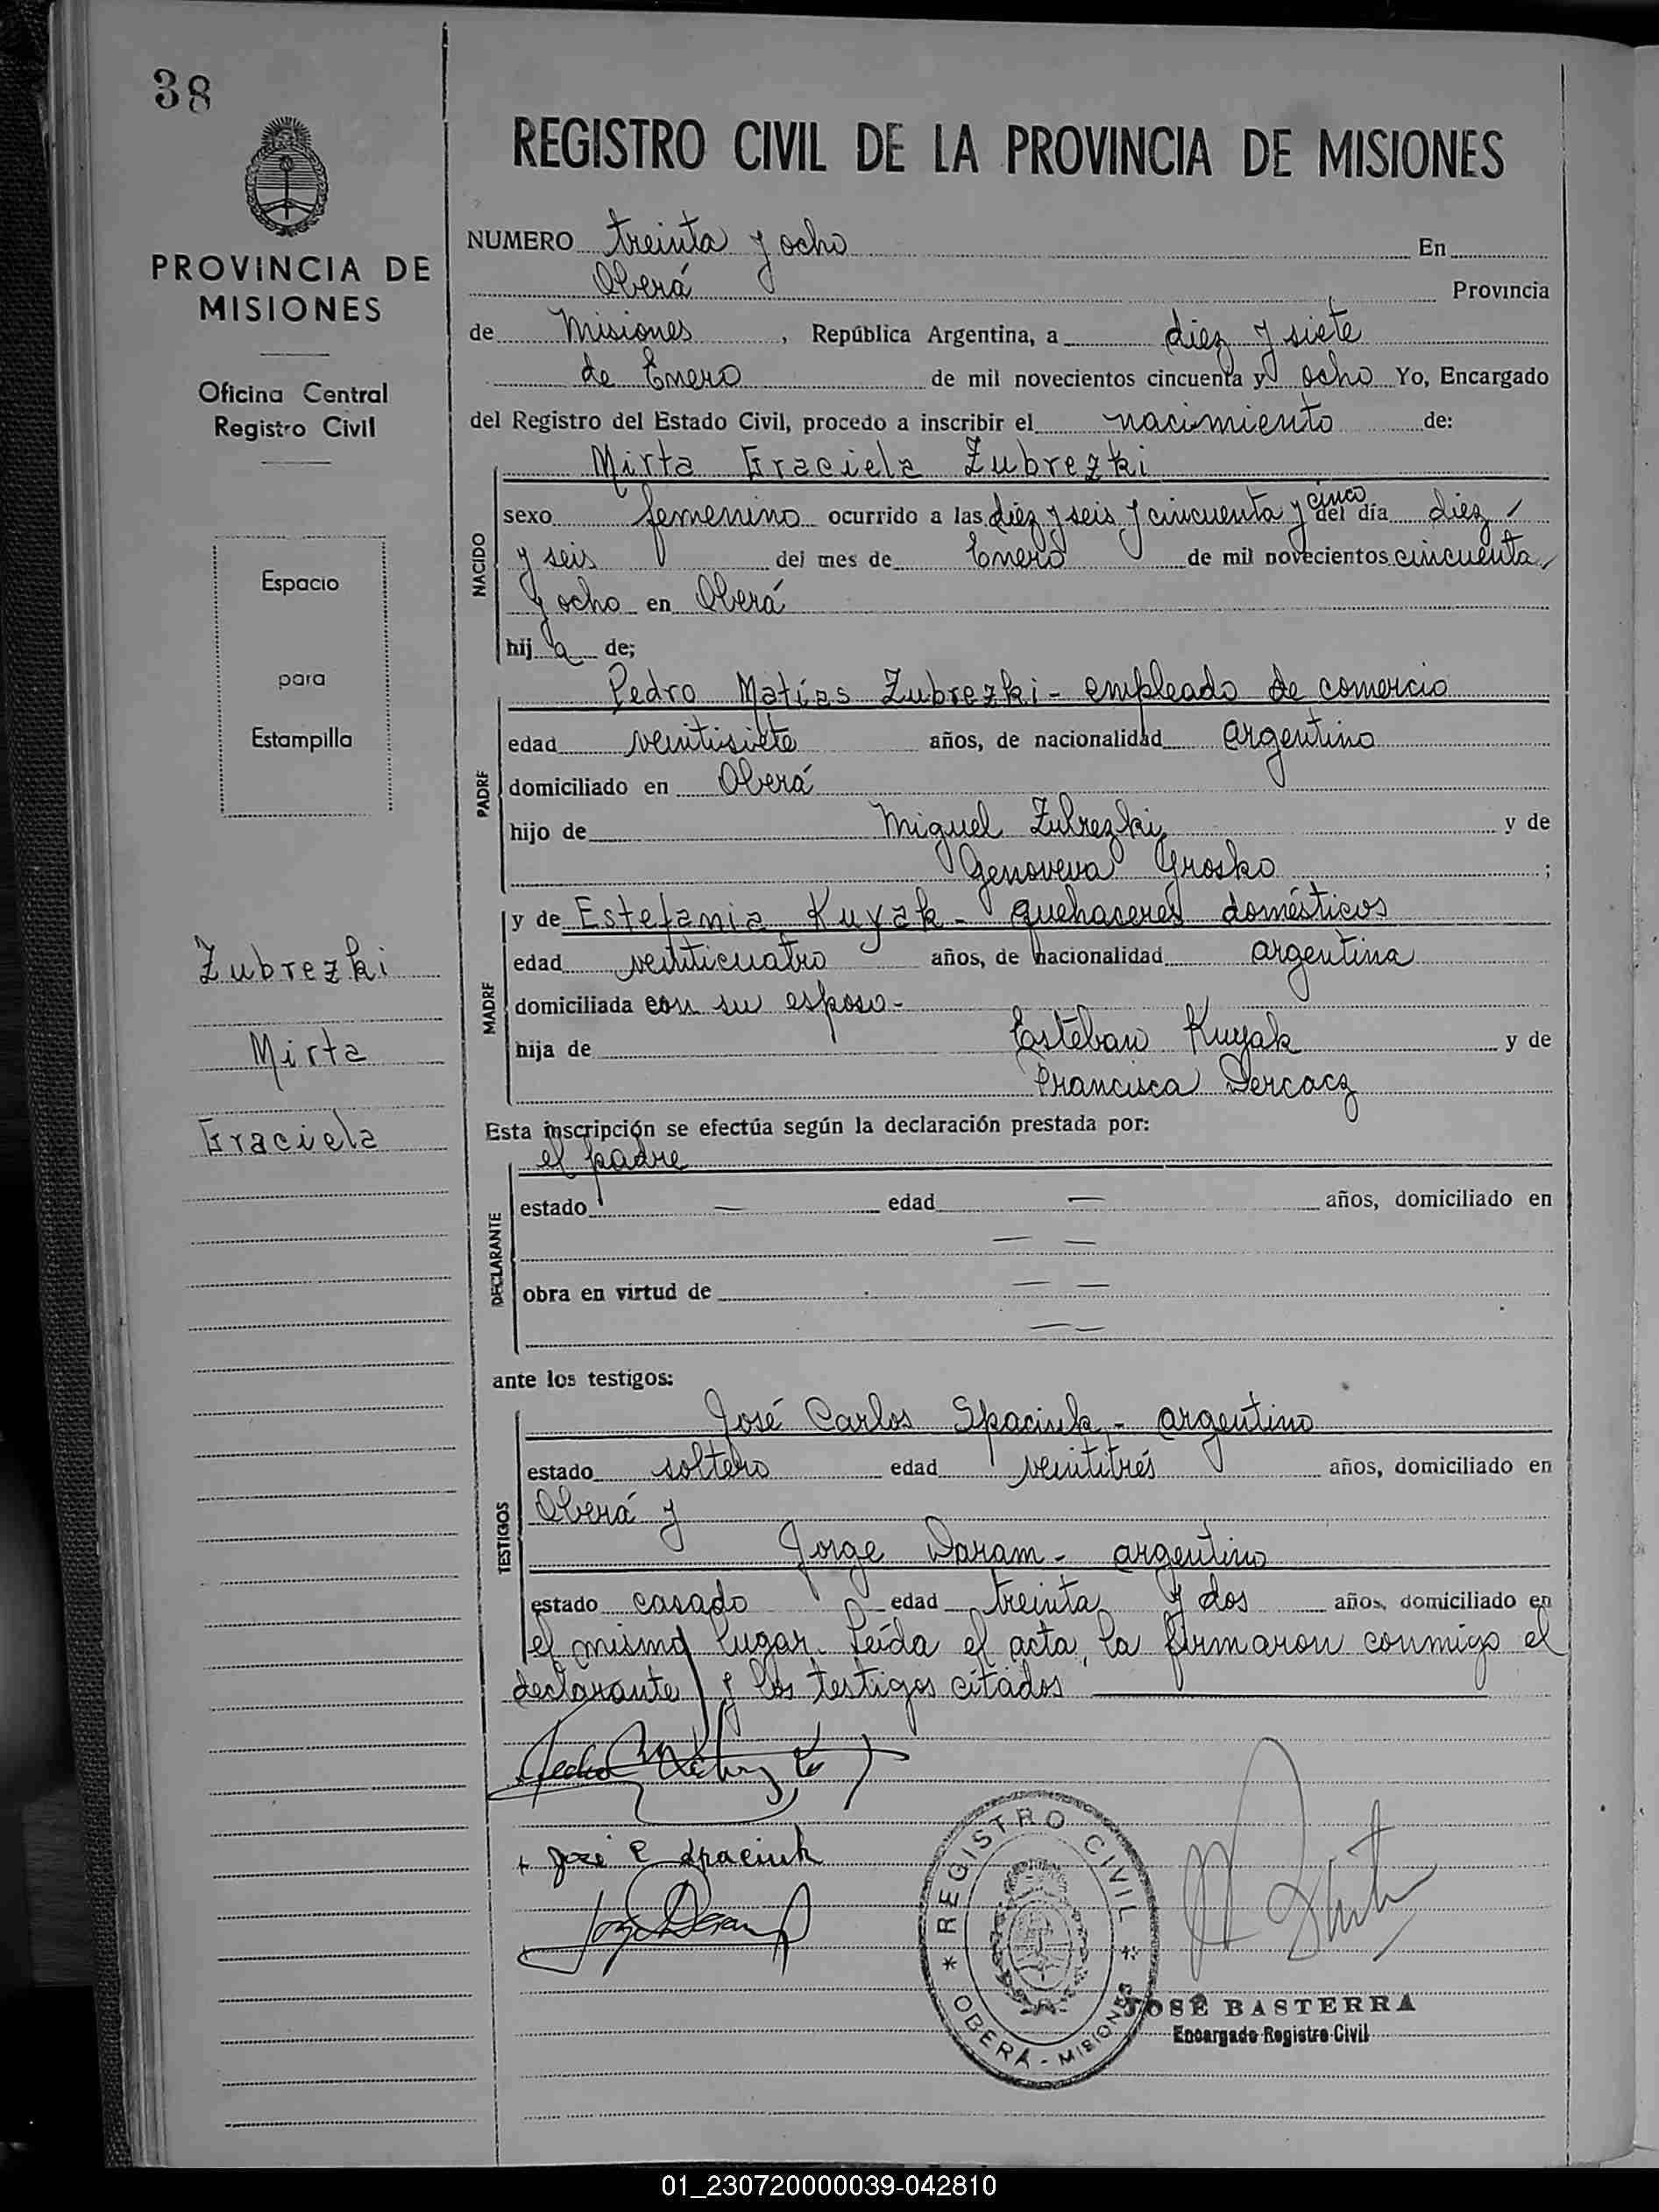 38
PROVINCIA DE
MISIONES
Oficina Central
Registro Civil
Espacio
para
Estampilla
Zubrezki
Mirta
Graciela
REGISTRO CIVIL DE LA PROVINCIA DE MISIONES
NUMERO treinta y ocho En
Oberá Provincia
de Misiones, República Argentina, a diez y siete
de Enero de mil novecientos cincuenta y ocho Yo, Encargado
del Registro del Estado Civil, procedo a inscribir el nacimiento de:
NACIDO
Mirta Graciela Zubrezki
sexo femenino ocurrido a las diez y seis y cincuenta y cinco del día diez
y seis del mes de Enero de mil novecientos cincuenta
y ocho en Oberá
hija de;
PADRE
Pedro Matías Zubrezki - empleado de comercio
edad veintisiete años, de nacionalidad argentino
domiciliado en Oberá
hijo de Miguel Zubrezki y de
Genoveva Grosko ;
MADRE
y de Estefania Kuyak - quehaceres domésticos
edad veinticuatro años, de nacionalidad argentina
domiciliada con su esposo -
hija de Esteban Kuyak y de
Francisca Dercacz
Esta inscripción se efectúa según la declaración prestada por:
DECLARANTE
el padre
estado — edad — años, domiciliado en
— —
obra en virtud de — —
— —
ante los testigos:
TESTIGOS
José Carlos Spaciuk - argentino
estado soltero edad veintitrés años, domiciliado en
Oberá y
Jorge Daram - argentino
estado casado edad treinta y dos años, domiciliado en
el mismo lugar. Leída el acta, la firmaron conmigo el
declarante y los testigos citados
José C Spaciuk
REGISTRO CIVIL
* OBERÁ - MISIONES *
JOSÉ BASTERRA
Encargado Registro Civil
01_230720000039-042810